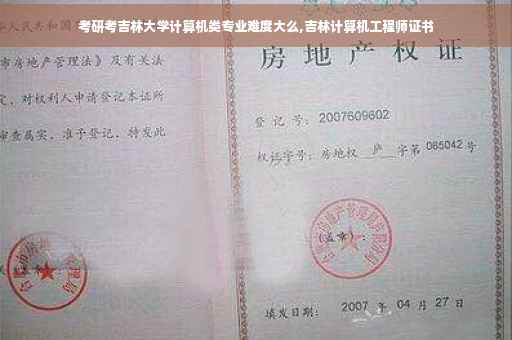 考研考吉林大学计算机类专业难度大么,吉林计算机工程师证书
华人民共和国
市房地产管理法》及有关法
定，对权利人申请登记本证所
审查属实，准予登记，特发此
房地产权证
登记号：2007609602
权证字号：房地权 庐 字第 085042 号
(盖章)：
填发日期：2007 年 04 月 27 日